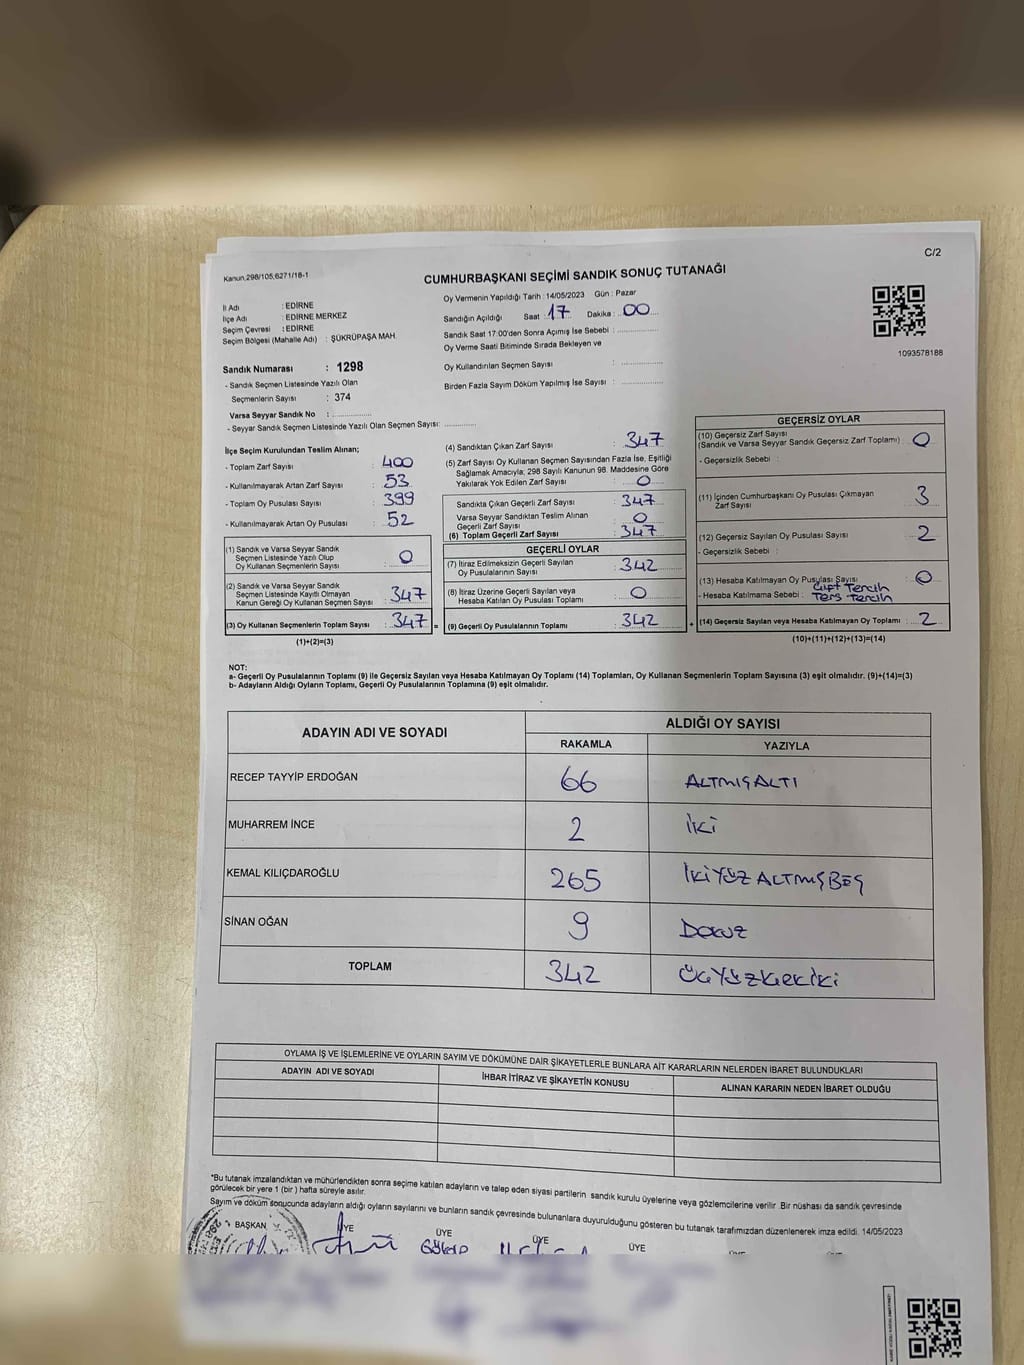 C/2
Kanun.298/105,6271/18-1
CUMHURBAŞKANI SEÇİMİ SANDIK SONUÇ TUTANAĞI
İl Adı : EDİRNE
İlçe Adı : EDİRNE MERKEZ
Seçim Çevresi : EDİRNE
Seçim Bölgesi (Mahalle Adı) : ŞÜKRÜPAŞA MAH.
Sandık Numarası : 1298
- Sandık Seçmen Listesinde Yazılı Olan
Seçmenlerin Sayısı : 374
Varsa Seyyar Sandık No : ..................
- Seyyar Sandık Seçmen Listesinde Yazılı Olan Seçmen Sayısı: .............
Oy Vermenin Yapıldığı Tarih : 14/05/2023 Gün : Pazar
Sandığın Açıldığı Saat : 17 Dakika : 00
Sandık Saat 17:00'den Sonra Açımış İse Sebebi : ..................
Oy Verme Saati Bitiminde Sırada Bekleyen ve
Oy Kullandırılan Seçmen Sayısı : ..................
Birden Fazla Sayım Döküm Yapılmış İse Sayısı : ..................
1093578188
İlçe Seçim Kurulundan Teslim Alınan;
- Toplam Zarf Sayısı : 400
- Kullanılmayarak Artan Zarf Sayısı : 53
- Toplam Oy Pusulası Sayısı : 399
- Kullanılmayarak Artan Oy Pusulası : 52
(1) Sandık ve Varsa Seyyar Sandık
Seçmen Listesinde Yazılı Olup
Oy Kullanan Seçmenlerin Sayısı : 0
(2) Sandık ve Varsa Seyyar Sandık
Seçmen Listesinde Kayıtlı Olmayan
Kanun Gereği Oy Kullanan Seçmen Sayısı : 347
(3) Oy Kullanan Seçmenlerin Toplam Sayısı : 347 =
(1)+(2)=(3)
(4) Sandıktan Çıkan Zarf Sayısı : 347
(5) Zarf Sayısı Oy Kullanan Seçmen Sayısından Fazla İse, Eşitliği
Sağlamak Amacıyla, 298 Sayılı Kanunun 98. Maddesine Göre
Yakılarak Yok Edilen Zarf Sayısı : 0
Sandıkta Çıkan Geçerli Zarf Sayısı : 347
Varsa Seyyar Sandıktan Teslim Alınan
Geçerli Zarf Sayısı : 0
(6) Toplam Geçerli Zarf Sayısı : 347
GEÇERLİ OYLAR
(7) İtiraz Edilmeksizin Geçerli Sayılan
Oy Pusulalarının Sayısı : 342
(8) İtiraz Üzerine Geçerli Sayılan veya
Hesaba Katılan Oy Pusulası Toplamı : 0
(9) Geçerli Oy Pusulalarının Toplamı : 342 +
GEÇERSİZ OYLAR
(10) Geçersiz Zarf Sayısı
(Sandık ve Varsa Seyyar Sandık Geçersiz Zarf Toplamı) : 0
- Geçersizlik Sebebi :
(11) İçinden Cumhurbaşkanı Oy Pusulası Çıkmayan
Zarf Sayısı : 3
(12) Geçersiz Sayılan Oy Pusulası Sayısı : 2
- Geçersizlik Sebebi :
(13) Hesaba Katılmayan Oy Pusulası Sayısı : 0
Çift Tercih
- Hesaba Katılmama Sebebi : Ters Tercih
(14) Geçersiz Sayılan veya Hesaba Katılmayan Oy Toplamı : 2
(10)+(11)+(12)+(13)=(14)
NOT:
a- Geçerli Oy Pusulalarının Toplamı (9) ile Geçersiz Sayılan veya Hesaba Katılmayan Oy Toplamı (14) Toplamları, Oy Kullanan Seçmenlerin Toplam Sayısına (3) eşit olmalıdır. (9)+(14)=(3)
b- Adayların Aldığı Oyların Toplamı, Geçerli Oy Pusulalarının Toplamına (9) eşit olmalıdır.
ADAYIN ADI VE SOYADI ALDIĞI OY SAYISI
RAKAMLA YAZIYLA
RECEP TAYYİP ERDOĞAN 66 ALTMIŞALTI
MUHARREM İNCE 2 İKİ
KEMAL KILIÇDAROĞLU 265 İKİYÜZ ALTMIŞBEŞ
SİNAN OĞAN 9 DOKUZ
TOPLAM 342 ÜÇYÜZKIRKİKİ
OYLAMA İŞ VE İŞLEMLERİNE VE OYLARIN SAYIM VE DÖKÜMÜNE DAİR ŞİKAYETLERLE BUNLARA AİT KARARLARIN NELERDEN İBARET BULUNDUKLARI
ADAYIN ADI VE SOYADI İHBAR İTİRAZ VE ŞİKAYETİN KONUSU ALINAN KARARIN NEDEN İBARET OLDUĞU
*Bu tutanak imzalandıktan ve mühürlendikten sonra seçime katılan adayların ve talep eden siyasi partilerin sandık kurulu üyelerine veya gözlemcilerine verilir. Bir nüshası da sandık çevresinde
görülecek bir yere 1 (bir ) hafta süreyle asılır.
Sayım ve döküm sonucunda adayların aldığı oyların sayılarını ve bunların sandık çevresinde bulunanlara duyurulduğunu gösteren bu tutanak tarafımızdan düzenlenerek imza edildi. 14/05/2023
BAŞKAN ÜYE ÜYE ÜYE ÜYE